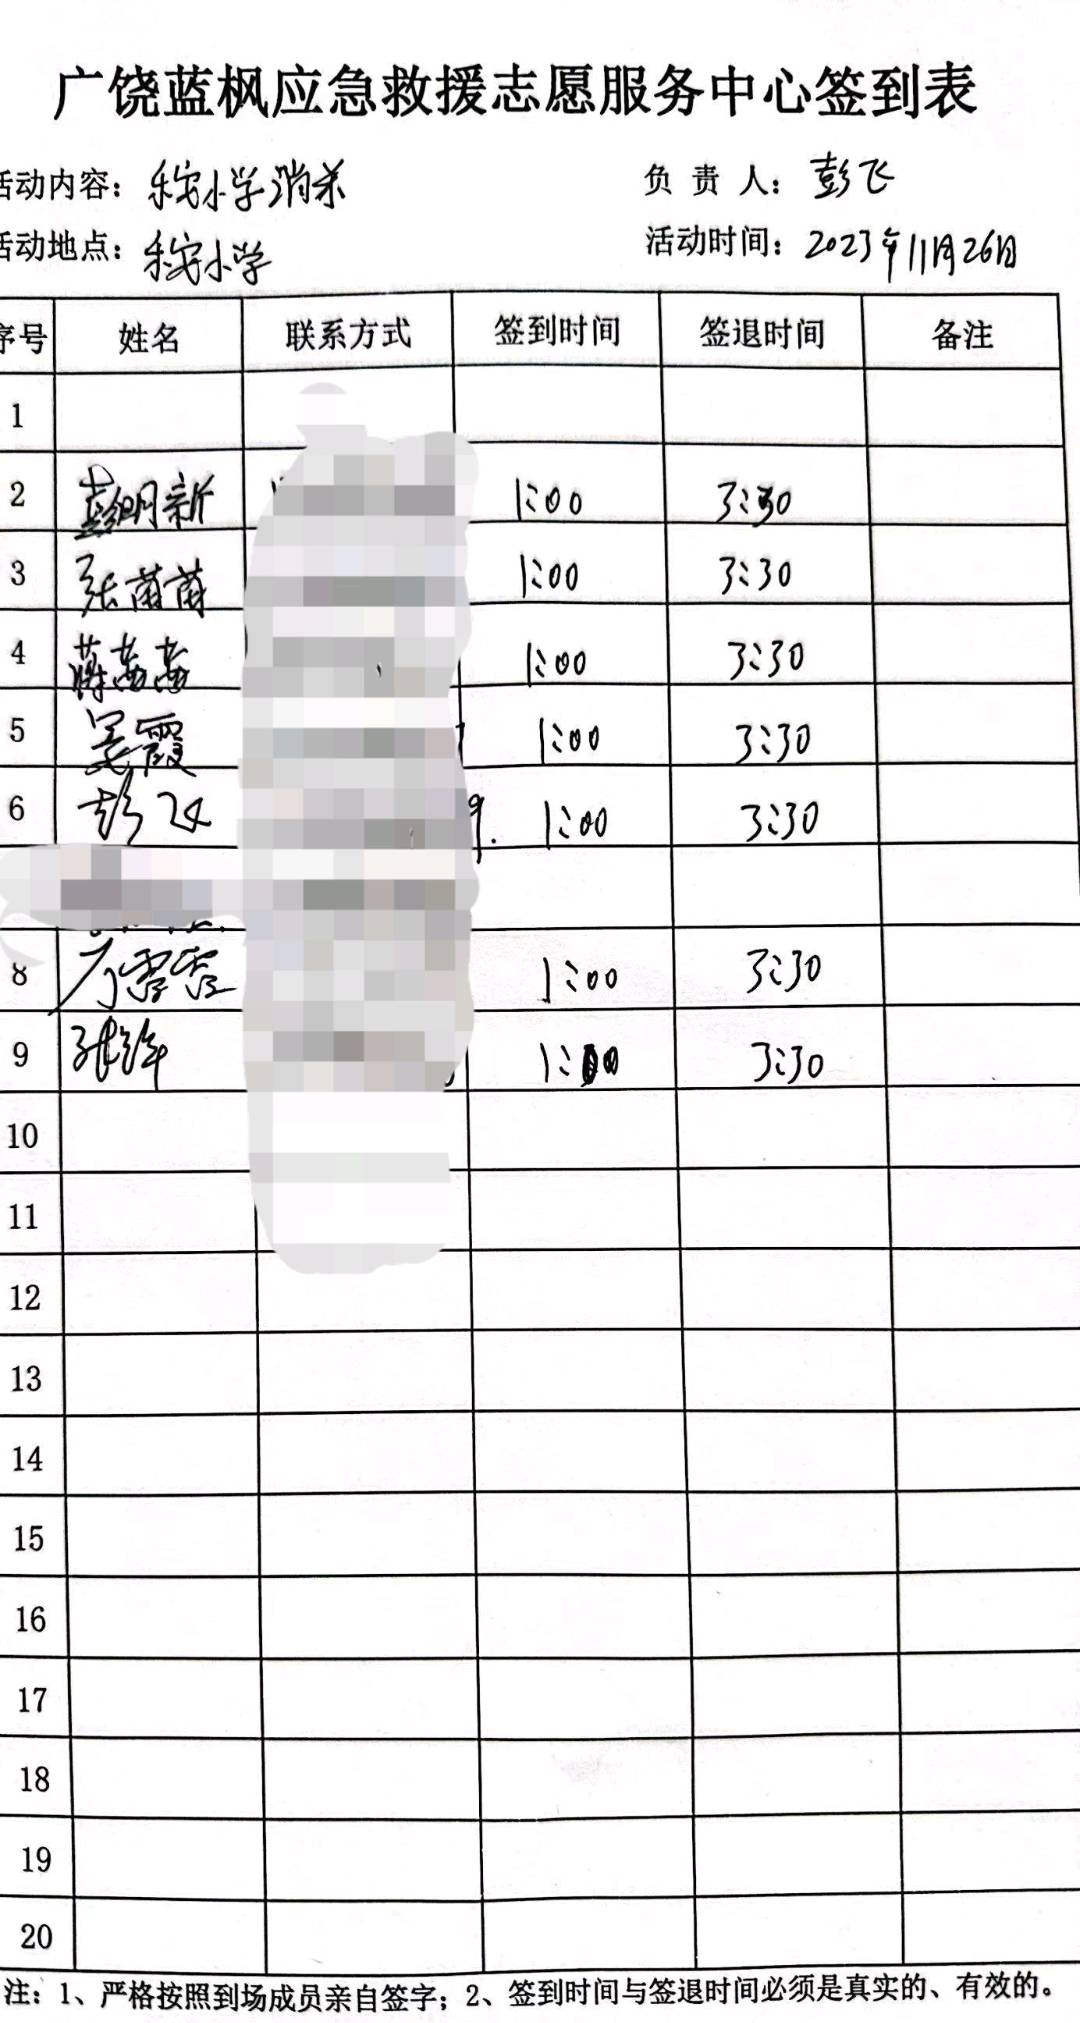 广饶蓝枫应急救援志愿服务中心签到表
活动内容：乐安小学消杀 负 责 人：彭飞
活动地点：乐安小学 活动时间：2023年11月26日
序号 姓名 联系方式 签到时间 签退时间 备注
1
2 彭明新 1:00 3:30
3 张苗苗 1:00 3:30
4 蒋苗苗 1:00 3:30
5 姜霞 1:00 3:30
6 彭飞 9. 1:00 3:30
8 1:00 3:30
9 1:00 3:30
10
11
12
13
14
15
16
17
18
19
20
注：1、严格按照到场成员亲自签字；2、签到时间与签退时间必须是真实的、有效的。